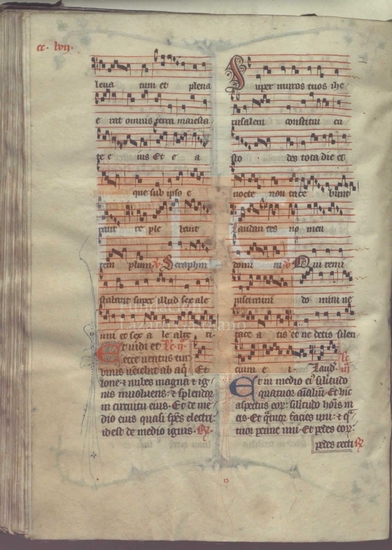 cc. lvij.
leva tum et plena
e rat omnis terra maiesta
te e ius Et e a
que sub ipso e
rant re ple bant
tem plum Seraphin
stabant super illud sex ale
uni et sex a le alte ri
Et vidi et
ecce ventus tur
binis veniebat ab aq̃. Et
nubes magna et ig
nis involvens. et splendor
in circuitu eius. Et de me
dio eius quasi spẽs electri
id est de medio ignis.
Super muros tuos ihe
rusalem constitui cu
sto des tota die et
nocte non tace bunt
laudan tes no men
domi ni Qui remi
niscimini domini ne
tace a tis et ne detis silen
tium e i Laud
Et in medio ei⁹ silitudo
quatuor aĩaliũ. Et hic
aspectus eor. silitudo hoĩs in
eis. Et facies uni. et
penne uni. Et pedes eor.
pedes recti